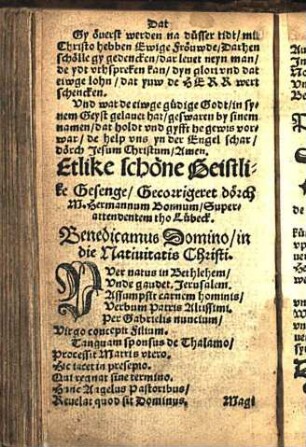 Dat
Gy överst werden na düsser tidt / mit
Christo hebben Ewige Fröuwde / Darhen
schölle gy gedencken / dar leuet neyn man /
de ydt vthspreken kan / dyn glori vnd dat
eiwge lohn / dat yuw de HERR wert
schencken.
Vnd wat de eiwge güdige Godt / in sy-
nem Geyst gelauet hat / geswaren by sinem
namen / dat holdt vnd gyfft he gewis vor
war / de help vns yn der Engel schar /
dörch Jesum Christum / Amen.
Etlike schöne Geistli-
ke Gesenge / Gecorrigeret dörch
M. Hermannum Bonnum / Super-
attendentem tho Lübeck.
Benedicamus Domino / in
die Natiuitatis Christi.
PVer natus in Bethlehem /
Vnde gaudet. Jerusalem.
Assumpsit carnem hominis /
Verbum Patris Altissimi.
Per Gabrielis nuncium /
Virgo concepit Filium.
Tanquam sponsus de Thalamo /
Processit Matris vtero.
Hic iacet in presepio.
Qui regnat sine termino.
Hinc Angelus Pastoribus /
Reuelat quod sit Dominus.
Magi